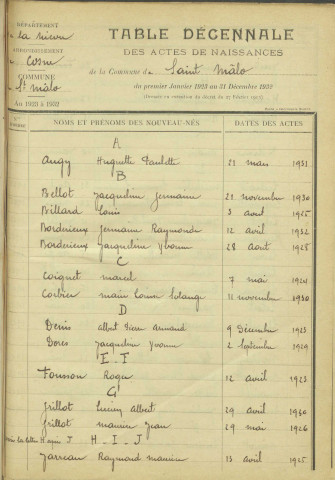 DÉPARTEMENT
de La Nièvre
ARRONDISSEMENT
Cosne
COMMUNE
St Mâlo
An 1923 à 1932
TABLE DÉCENNALE
DES ACTES DE NAISSANCES
de la Commune de Saint Mâlo
du premier Janvier 1923 au 31 Décembre 1932
NOMS ET PRÉNOMS DES NOUVEAU-NÉS
DATES DES ACTES
A
Augy Huguette Paulette 21 mars 1931
B
Bellot Jacqueline Germaine 21 novembre 1930
Billard Louis 3 avril 1925
Borderieux Germaine Raymonde 12 avril 1932
Borderieux Jacqueline Yvonne 28 août 1928
C
Coignet marcel 7 mai
Corbier Louise Solange 11 novembre 1930
D
Denis albert Pierre Armand 9 Décembre 1923
Jacqueline Yvonne 2 Septembre 1929
E F
Fousson Roger 12 avril 1923
G
Grillot Lucien Albert 29 avril
Grillot maurice Jean 29 mai 1926
H - I - J
Jarreau Raymond maurice 13 avril 1925